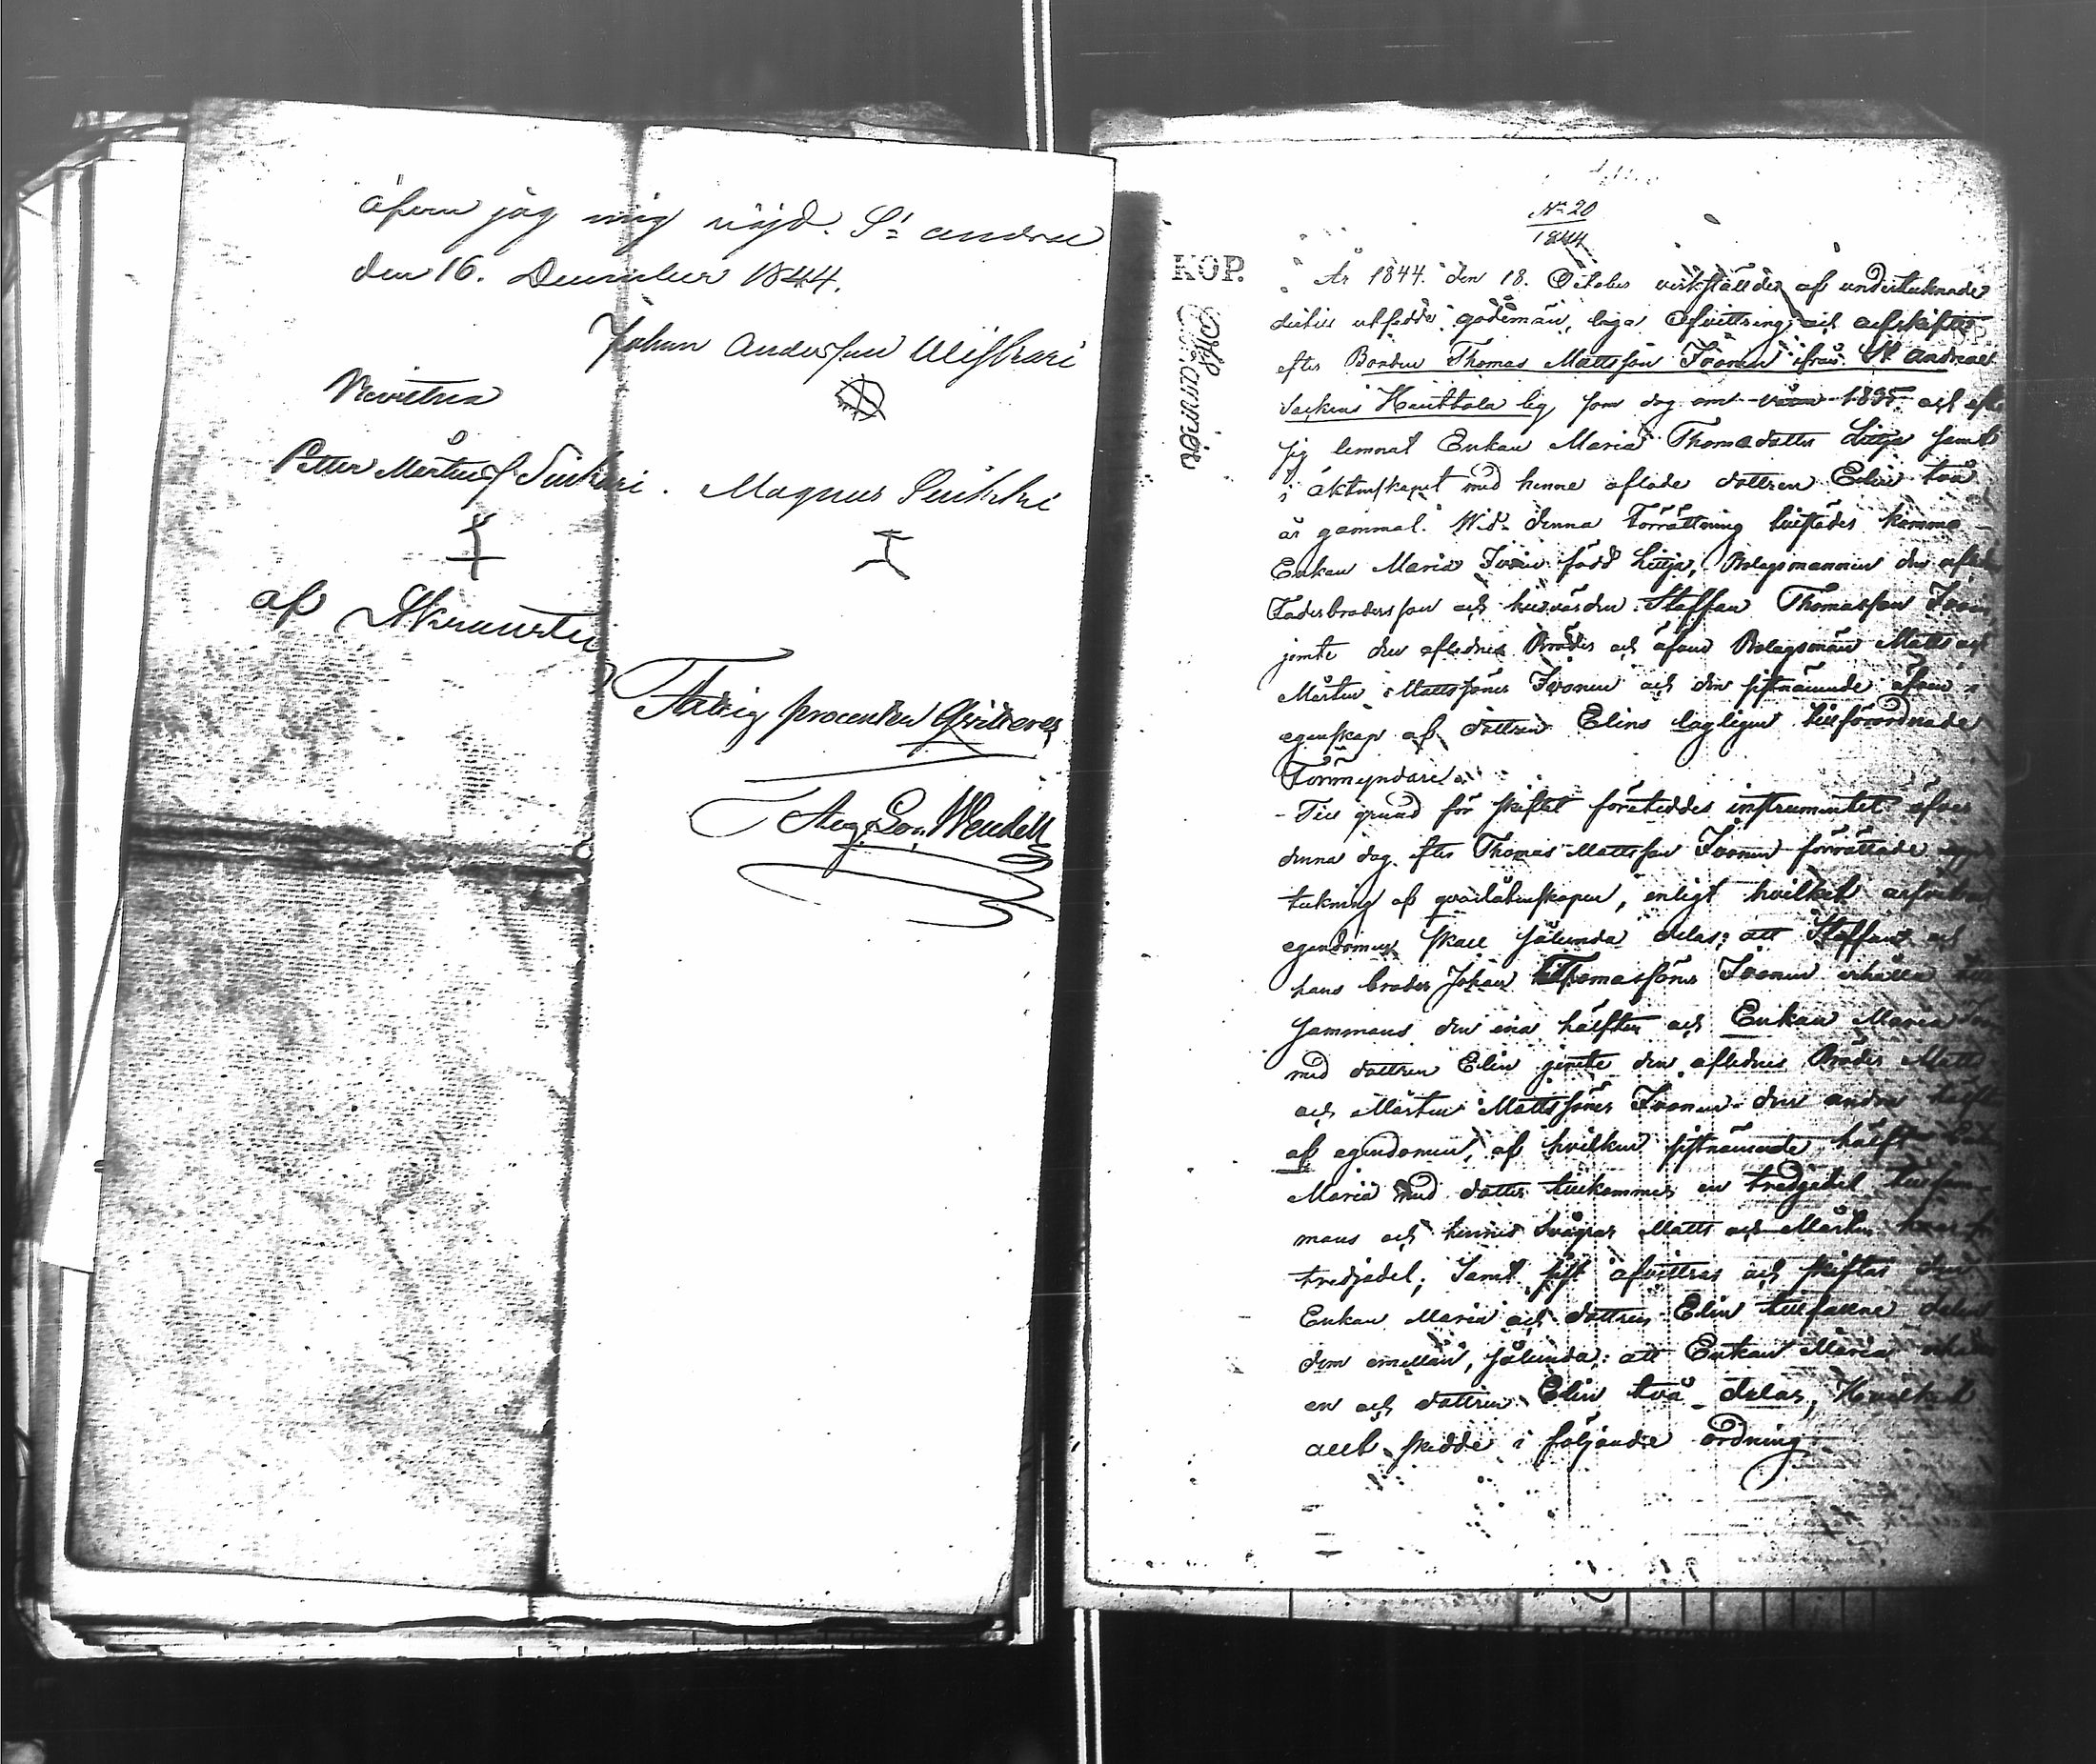 åfven jag mig nöjd. St andræ
den 16. December 1844.
Johan Andersson
Bevittna
Petter Mårtensf
Magnus
af
Fattig procenten qvitteras
Aug. Wendell
No 20
1844
KOP.
År 1844. den 18. October verkställdes af undertecknade
dertill utsedde godemän, laga afvittring och arfskifte
efter Bonden Thomas Mattsson Ivonen ifrån St andreæ
Sockens Kauttola by, som dog om våren 1835. och efter
sig lemnat Enkan Maria Thomædotter Littja samt
i äktenskapet med henne aflade dottren Elin två
år gammal. Wid denna Förrättning tillstädes kommo
Enkan Maria Ivonen född Littja, Bolagsmannen den aflednes
Faderbrodersson och husvärden Staffan Thomasson Ivonen
jemte den aflednes Bröder och äfven Bolagsmän Matts och
Mårten Mattssöner Ivonen och den sistnämnde äfven i
egenskap af dottren Elins lagligen tillförordnade
Förmyndare.
Till grund för skiftet företeddes instrumentet öfver
denna dag efter Thomas Mattsson Ivonen förrättade upp
teckning af qvarlåtenskapen, enligt hvilket
egendomen skall sålunda delas: att Staffan och
hans broder Johan Thomassöner Ivonen erhålla till
sammans den ena hälften och Enkan Maria
med dottren Elin jemte den aflednes Bröder Matts
och Mårten Mattssöner Ivonen den andra hälft
af egendomen, af hvilken sistnämnde hälft
Maria med dotter tillkommer en tredjedel tillsam
mans och hennes Svågrar Matts och Mårten hvar sin
tredjedel; Samt sist afvittras och skiftas den
Enkan Maria och dottren Elin tillfallne delen
dem emellan, sålunda: att Enkan Maria erhåller
en och dottren Elin två delar, Hvilket
allt skedde i följande ordning